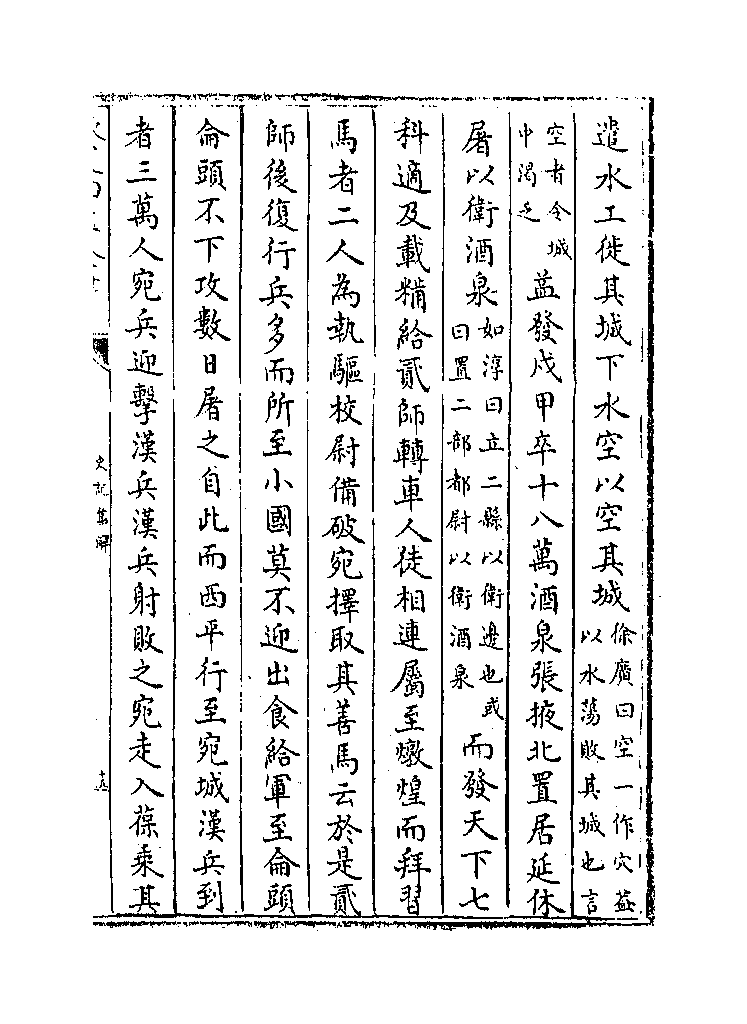 遣水工徙其城下水空以空其城徐廣曰空一作穴蓋
以水蕩敗其城也言
空者令城
中渴乏益發戍甲卒十八萬酒泉張掖北置居延休
屠以衛酒泉如淳曰立二縣以衛邊也或
曰置二部都尉以衛酒泉而發天下七
科適及載糒給貳師轉車人徒相連屬至燉煌而拜習
馬者二人為執驅校尉備破宛擇取其善馬云於是貳
師後復行兵多而所至小國莫不迎出食給軍至侖頭
侖頭不下攻數日屠之自此而西平行至宛城漢兵到
者三萬人宛兵迎擊漢兵漢兵射敗之宛走入葆乘其
史記集解